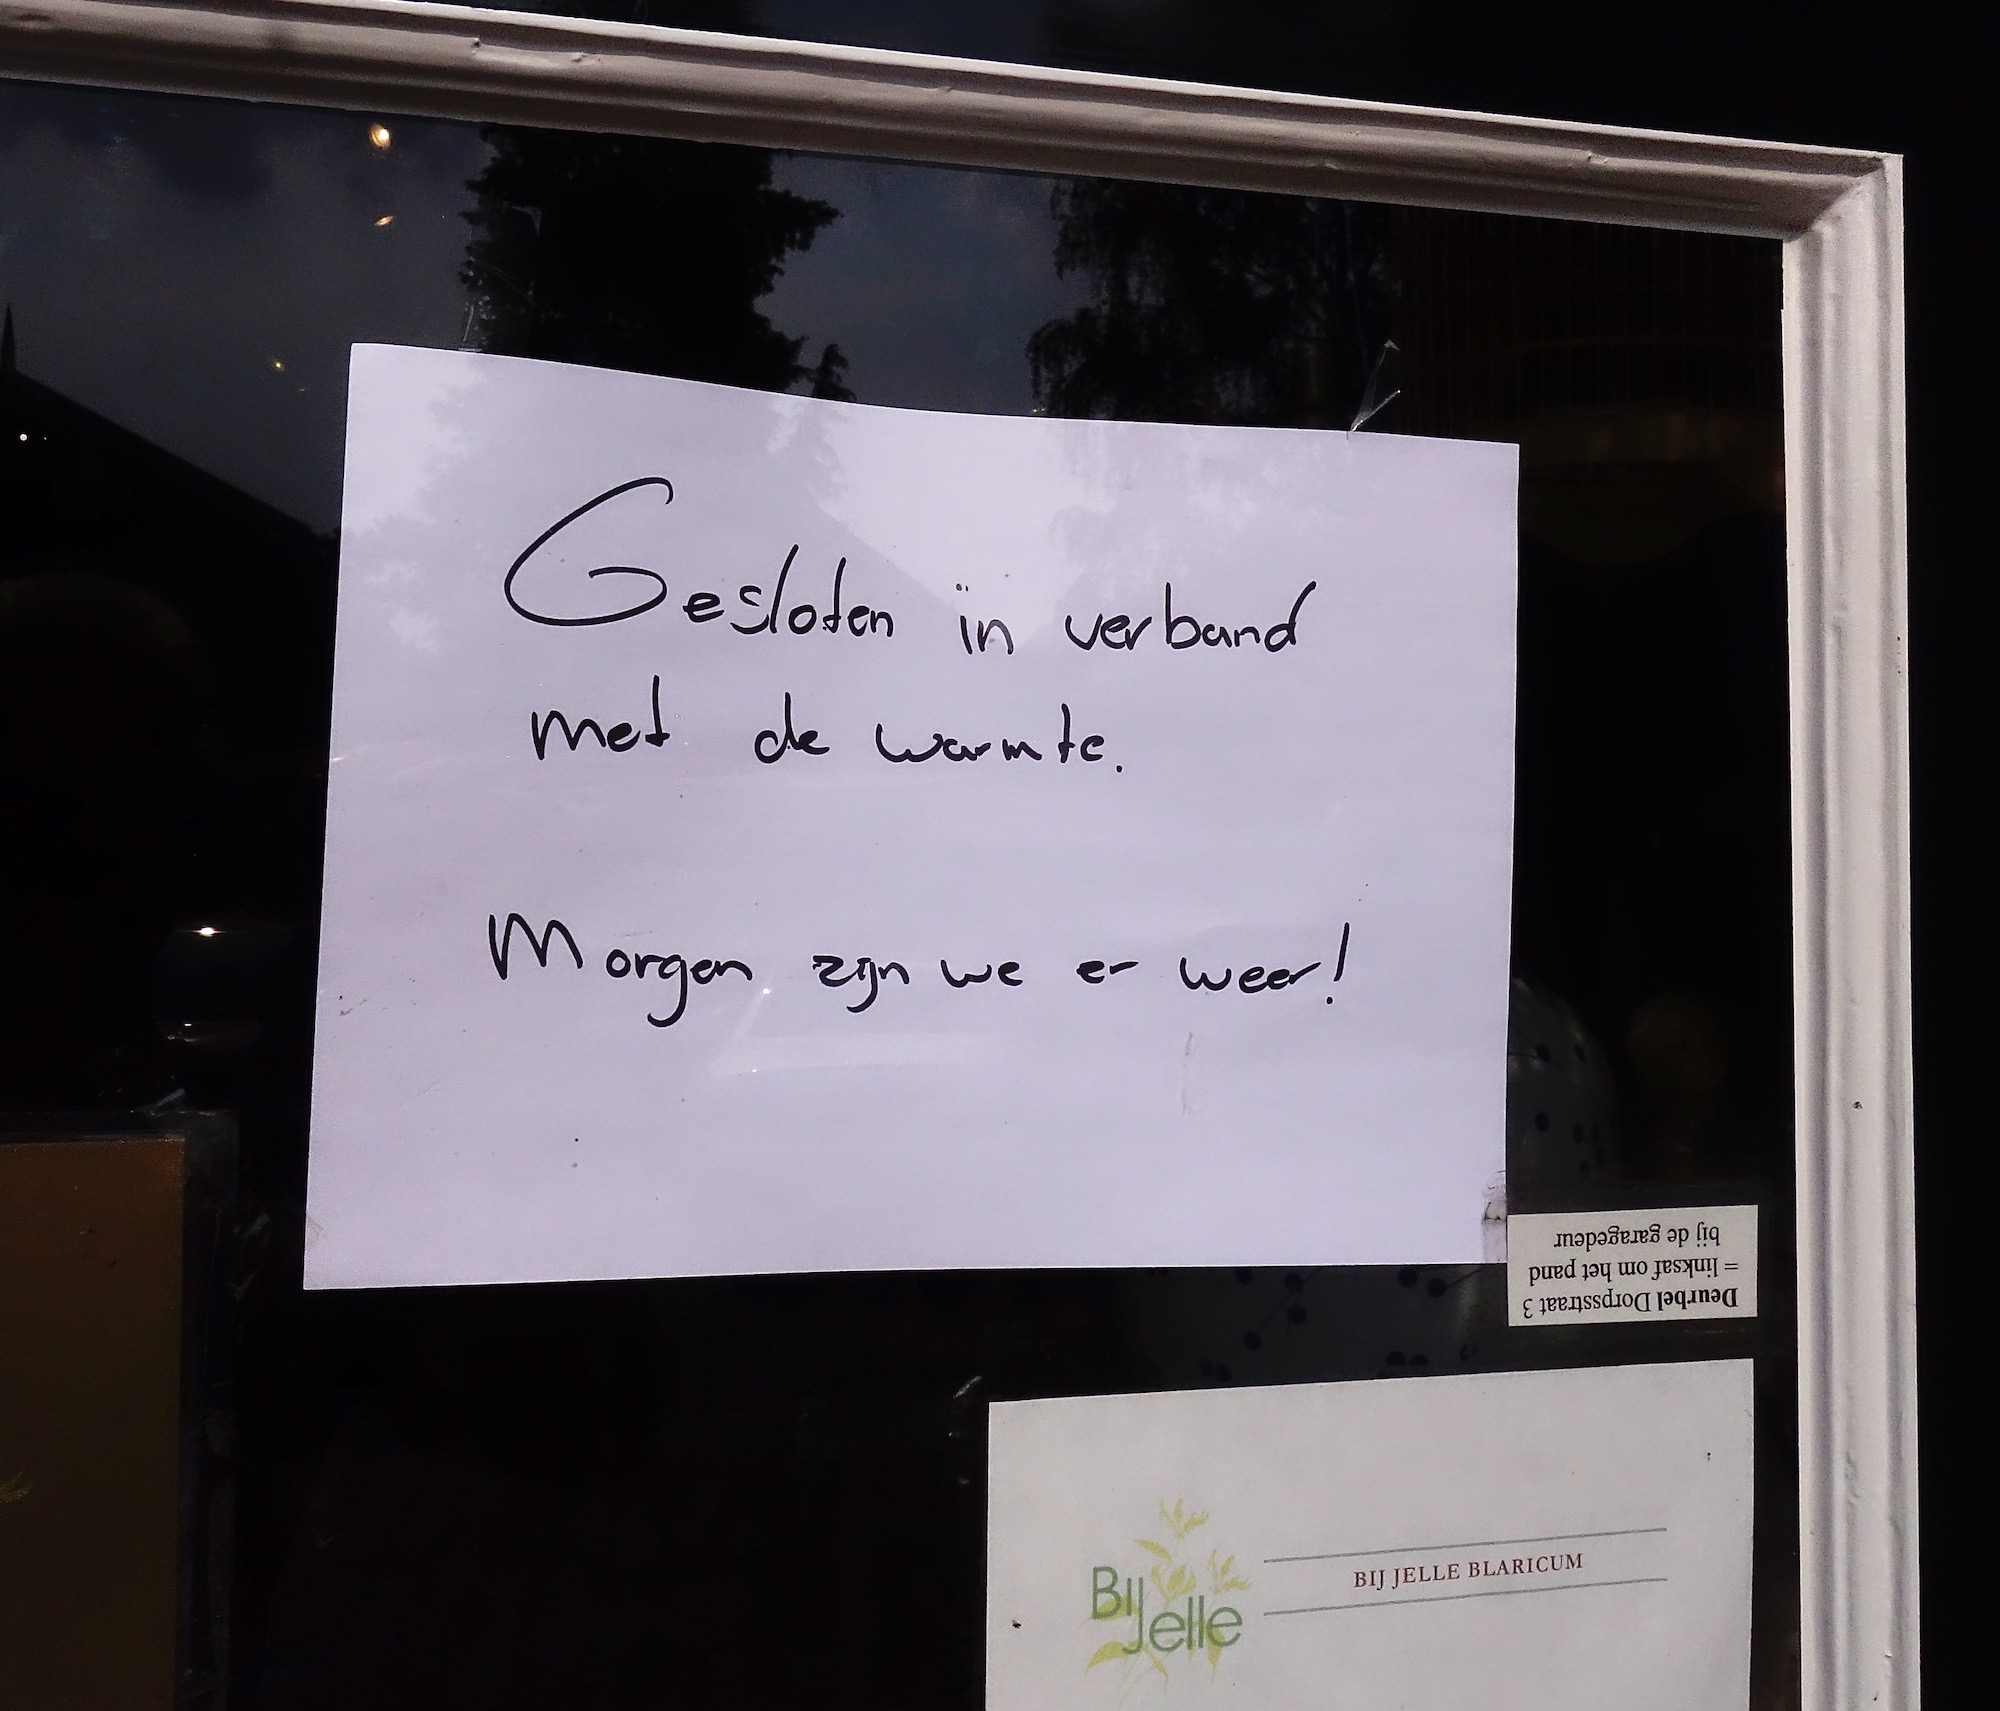 Gesloten in verband
met de warmte.
Morgen zijn we er weer!
Deurbel Dorpsstraat 3
= linksaf om het pand
bij de garagedeur
Bij
Jelle
BIJ JELLE BLARICUM